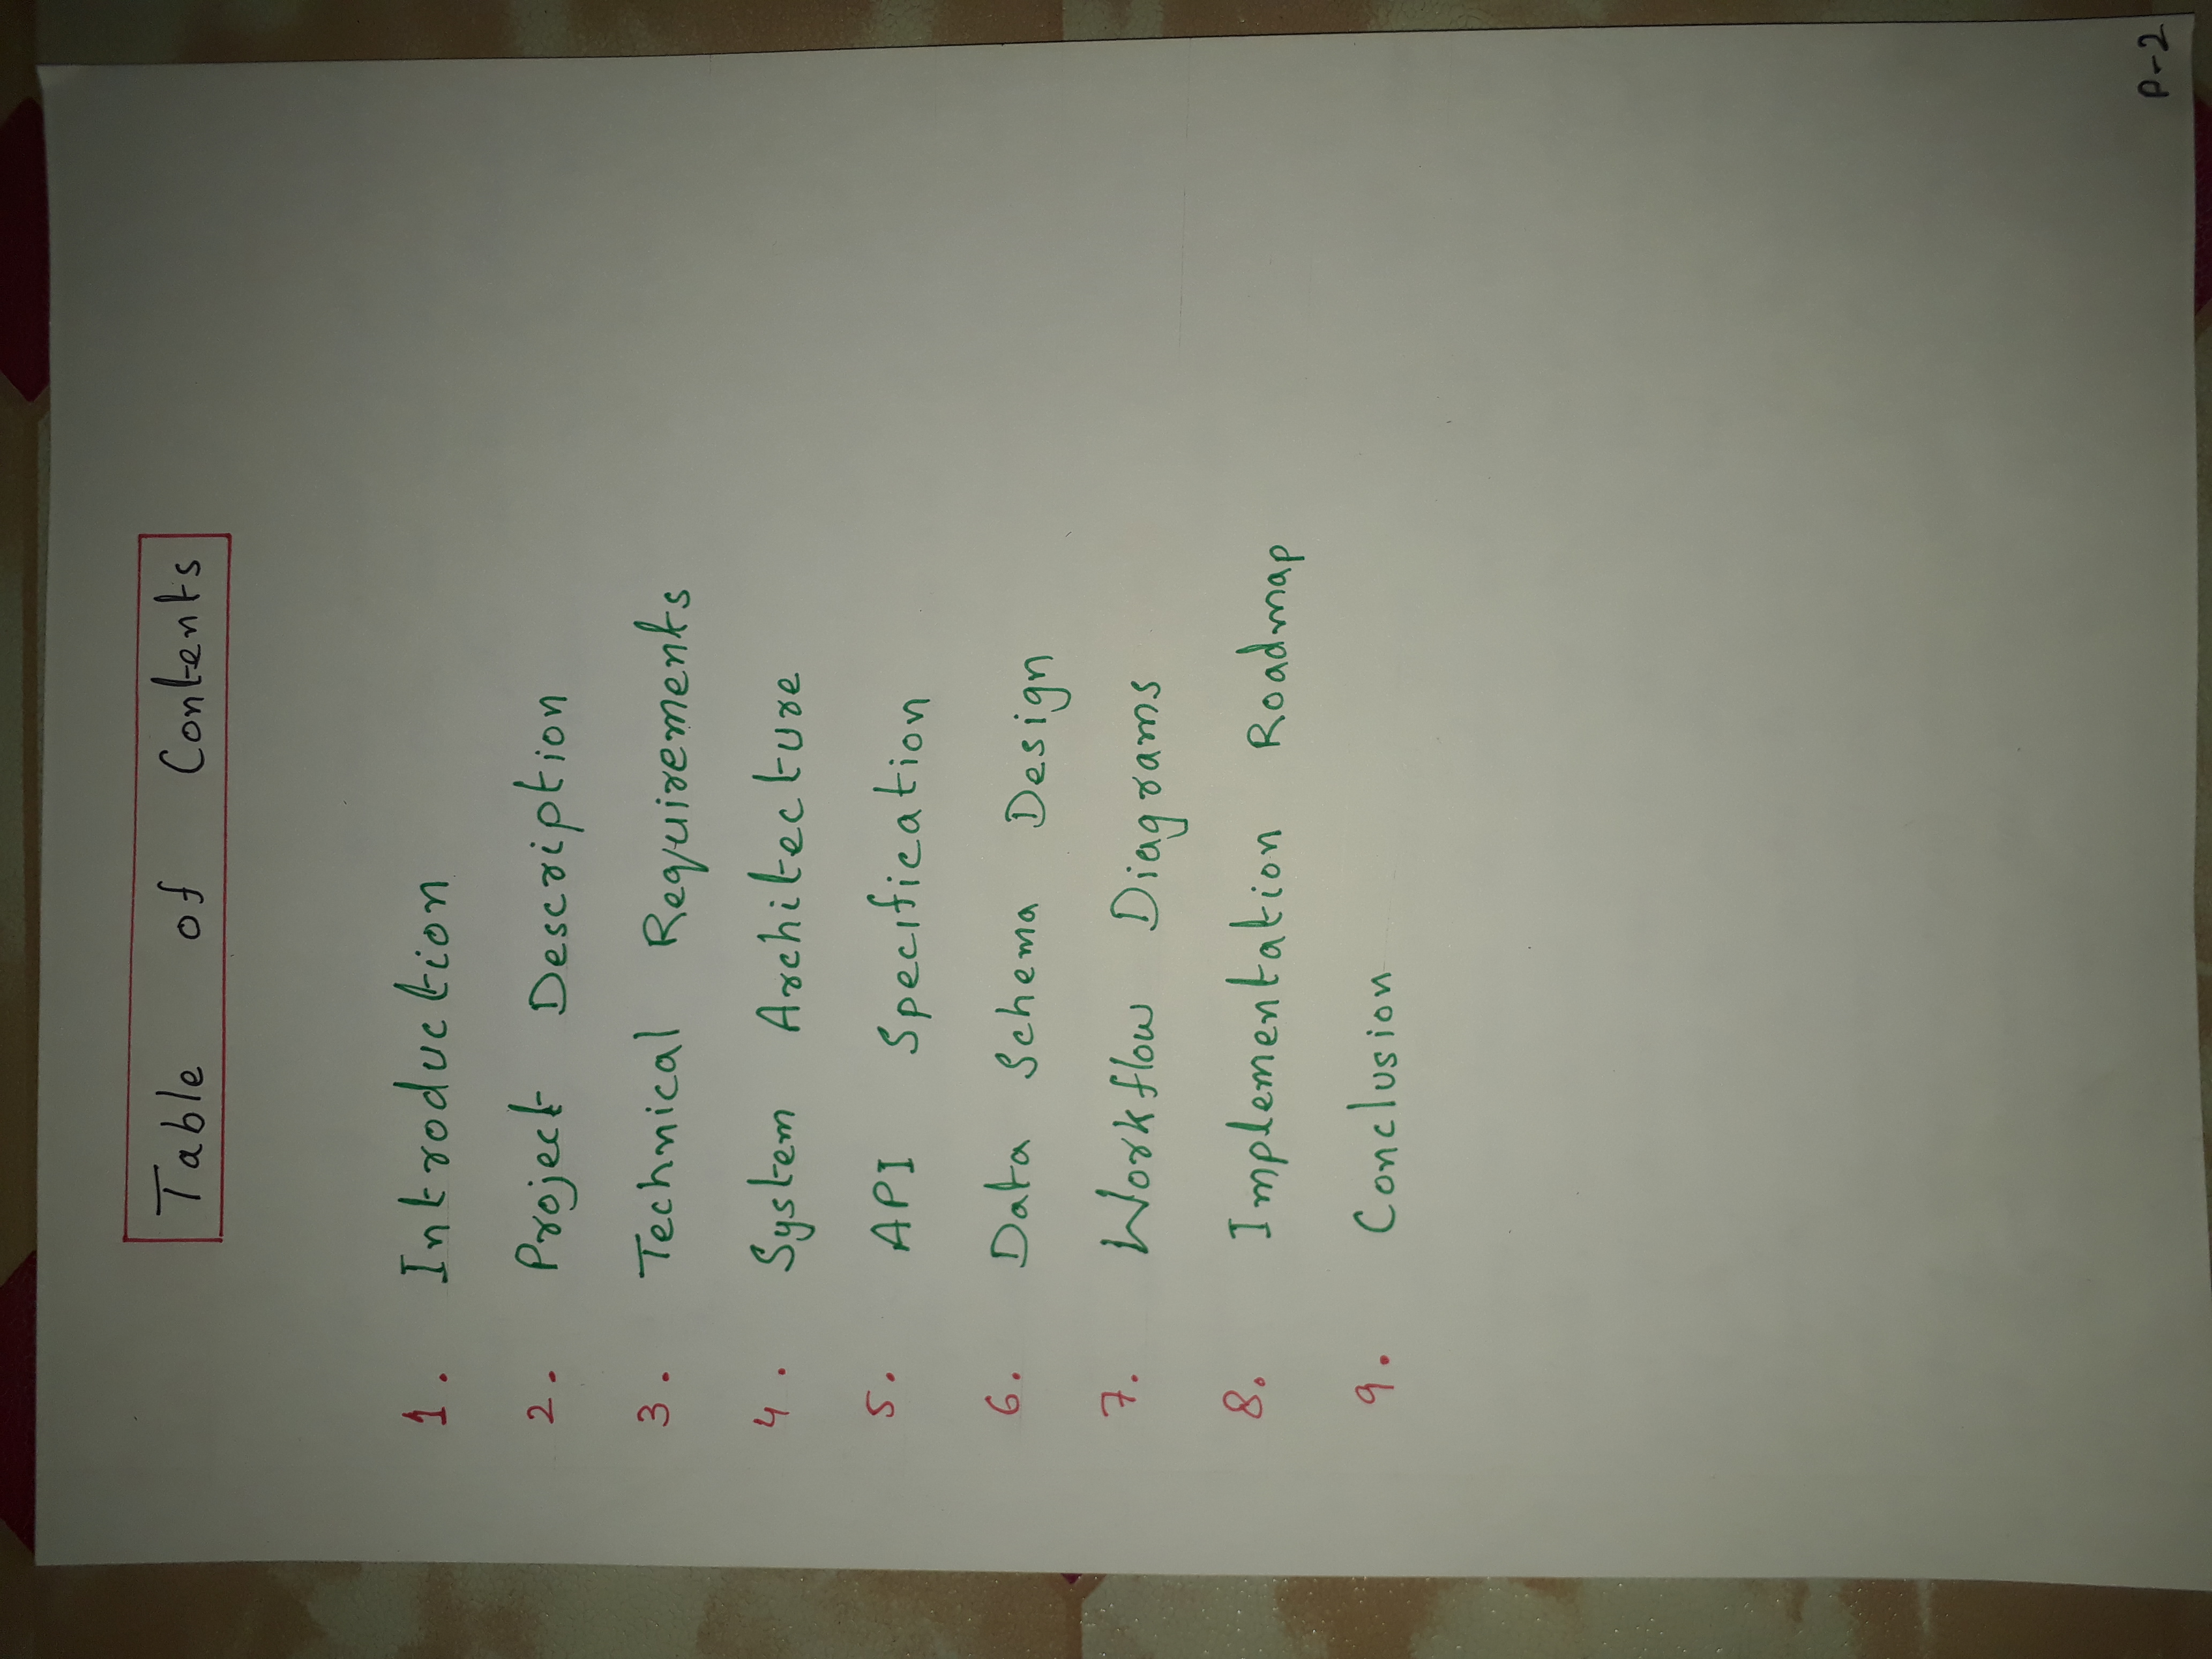 Table of Contents
1. Introduction
2. Project Description
3. Technical Requirements
4. System Architecture
5. API Specification
6. Data Schema Design
7. Workflow Diagrams
8. Implementation Roadmap
9. Conclusion
P-2